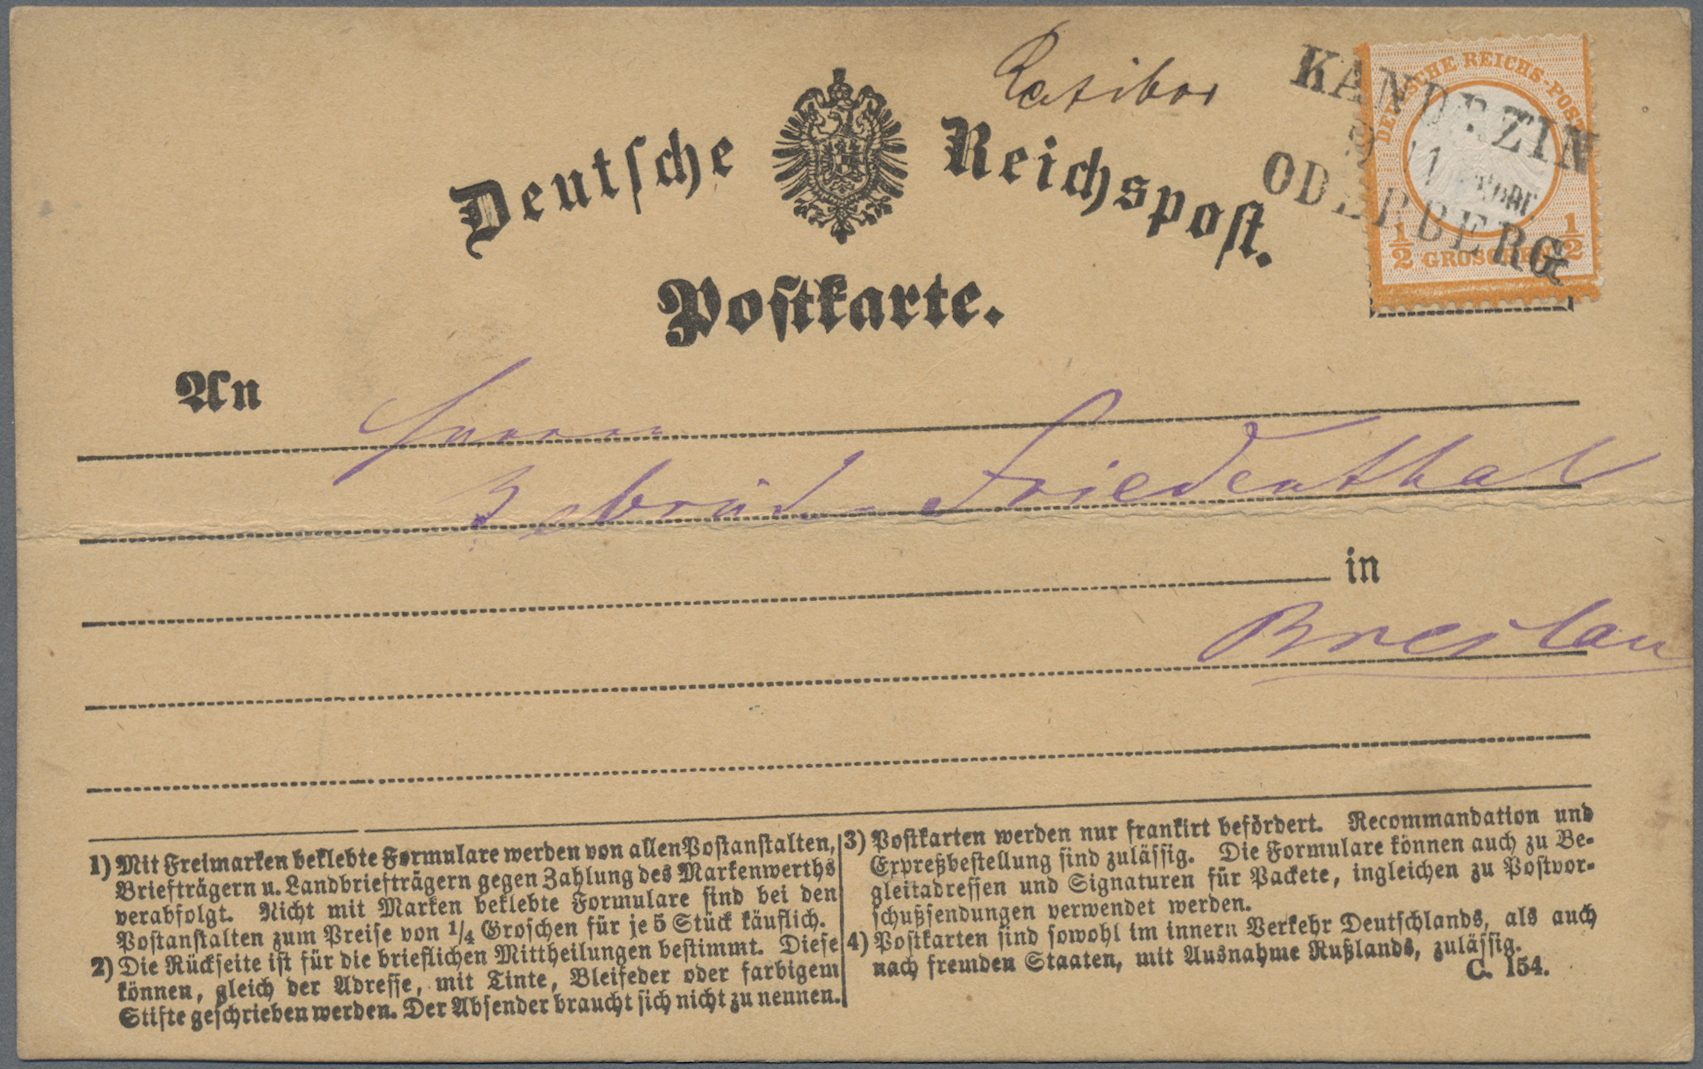 Ratibor
Deutsche Reichspost.
Postkarte.
KANDRZIN
9 11
ODERBERG
DEUTSCHE REICHS-POST
½ GROSCHEN ½
An
Herren
Gebrüd. Friedenthal
in
Breslau
1) Mit Freimarken beklebte Formulare werden von allen Postanstalten,
Briefträgern u. Landbriefträgern gegen Zahlung des Markenwerths
verabfolgt. Nicht mit Marken beklebte Formulare sind bei den
Postanstalten zum Preise von 1/4 Groschen für je 5 Stück käuflich.
2) Die Rückseite ist für die brieflichen Mittheilungen bestimmt. Diese
können, gleich der Adresse, mit Tinte, Bleifeder oder farbigem
Stifte geschrieben werden. Der Absender braucht sich nicht zu nennen.
3) Postkarten werden nur frankirt befördert. Recommandation und
Expreßbestellung sind zulässig. Die Formulare können auch zu Be-
gleitadressen und Signaturen für Packete, ingleichen zu Postvor-
schußsendungen verwendet werden.
4) Postkarten sind sowohl im innern Verkehr Deutschlands, als auch
nach fremden Staaten, mit Ausnahme Rußlands, zulässig.
C. 154.